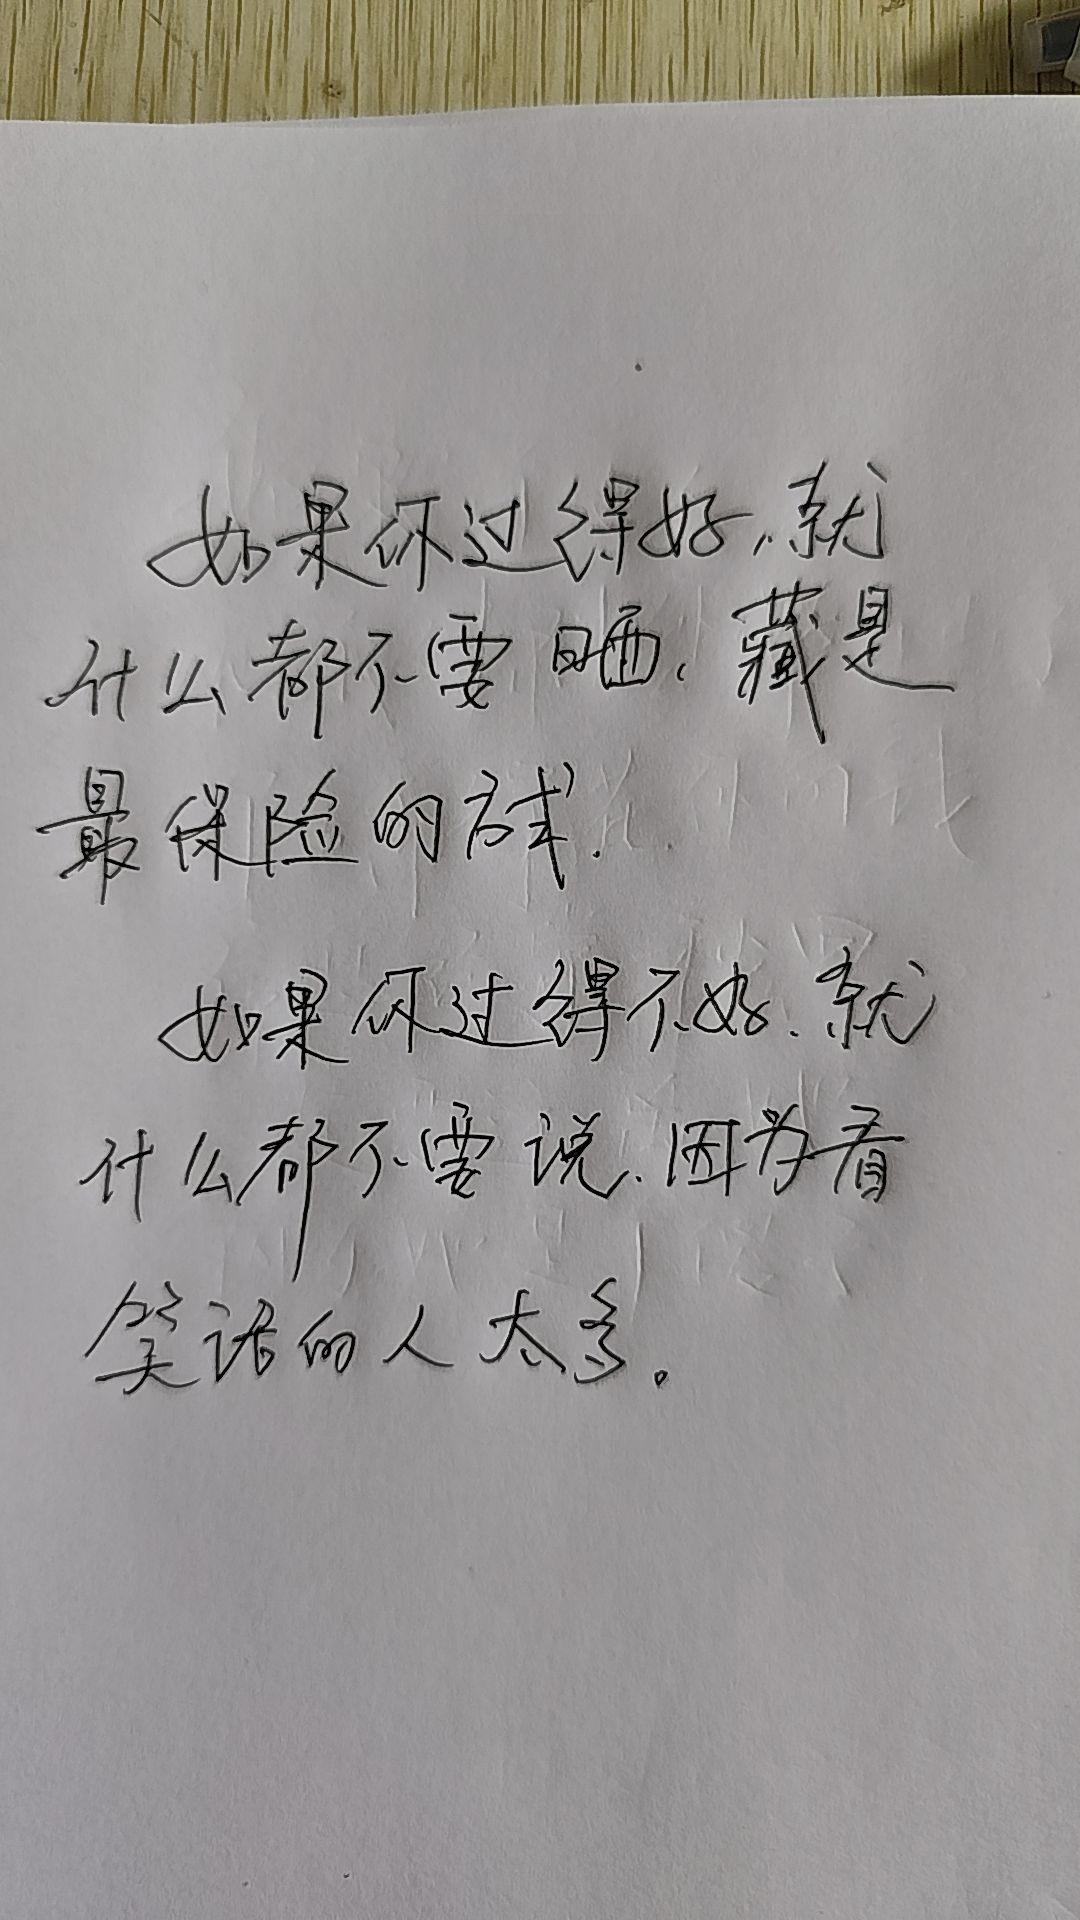 如果你过得好,就
什么都不要晒,藏是
最保险的方式.
如果你过得不好,就
什么都不要说,因为看
笑话的人太多。